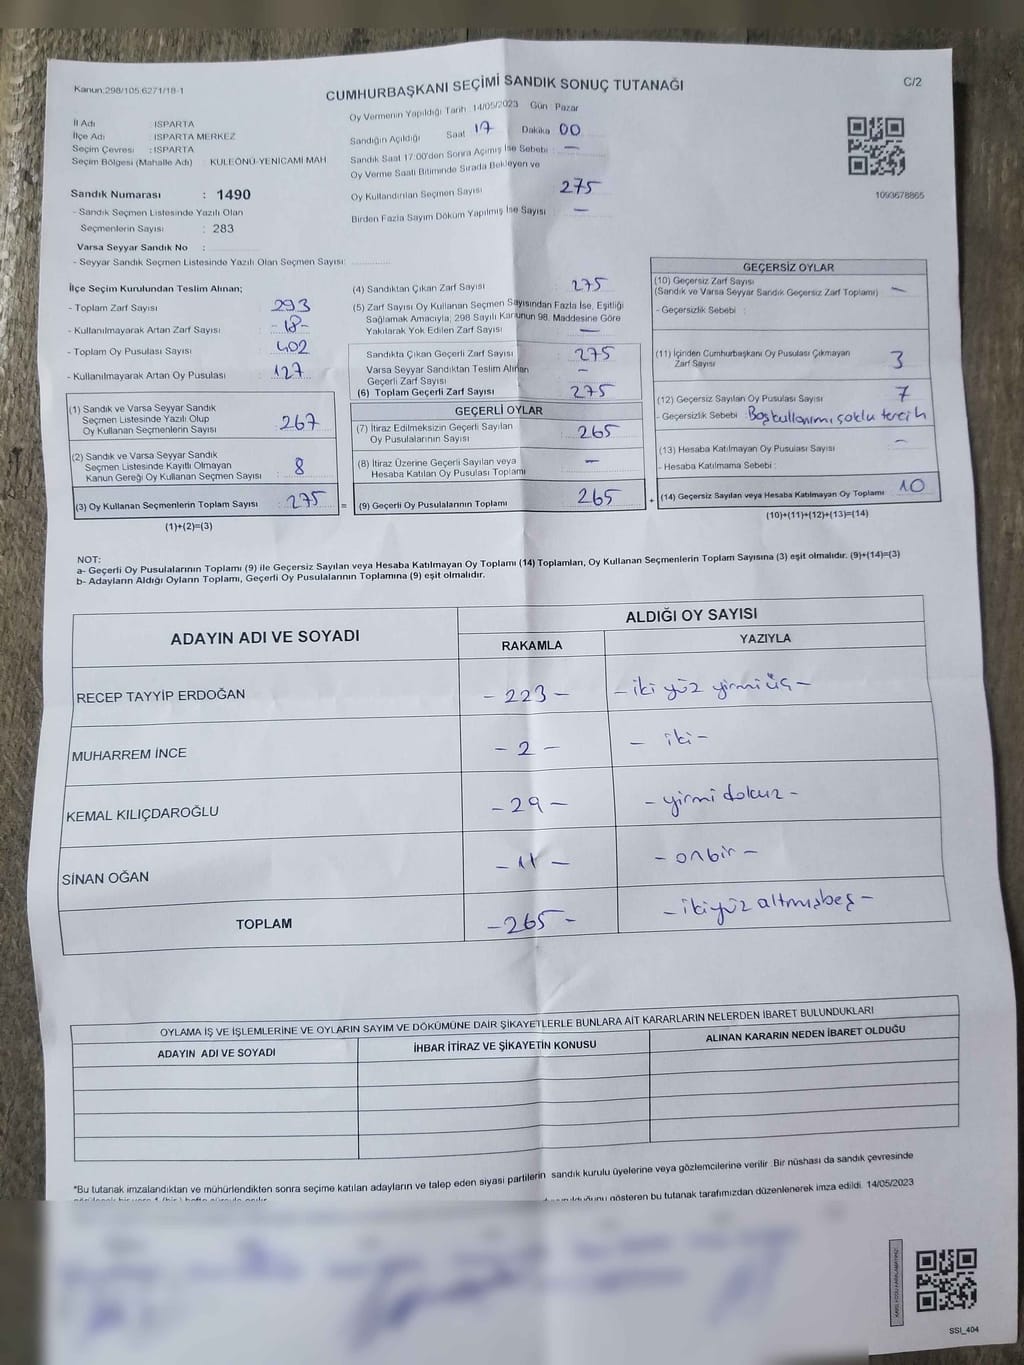 Kanun:298/105,6271/18-1
CUMHURBAŞKANI SEÇİMİ SANDIK SONUÇ TUTANAĞI
C/2
İl Adı : ISPARTA
İlçe Adı : ISPARTA MERKEZ
Seçim Çevresi : ISPARTA
Seçim Bölgesi (Mahalle Adı) : KULEÖNÜ-YENİCAMİ MAH
Sandık Numarası : 1490
- Sandık Seçmen Listesinde Yazılı Olan
Seçmenlerin Sayısı : 283
Varsa Seyyar Sandık No :
- Seyyar Sandık Seçmen Listesinde Yazılı Olan Seçmen Sayısı:
Oy Vermenin Yapıldığı Tarih 14/05/2023 Gün Pazar
Sandığın Açıldığı Saat 17 Dakika 00
Sandık Saat 17:00'den Sonra Açımış İse Sebebi : —
Oy Verme Saati Bitiminde Sırada Bekleyen ve
Oy Kullandırılan Seçmen Sayısı 275
Birden Fazla Sayım Döküm Yapılmış İse Sayısı —
1093678865
İlçe Seçim Kurulundan Teslim Alınan;
- Toplam Zarf Sayısı 293
- Kullanılmayarak Artan Zarf Sayısı -18-
- Toplam Oy Pusulası Sayısı 402
- Kullanılmayarak Artan Oy Pusulası 127
(1) Sandık ve Varsa Seyyar Sandık
Seçmen Listesinde Yazılı Olup
Oy Kullanan Seçmenlerin Sayısı : 267
(2) Sandık ve Varsa Seyyar Sandık
Seçmen Listesinde Kayıtlı Olmayan
Kanun Gereği Oy Kullanan Seçmen Sayısı 8
(3) Oy Kullanan Seçmenlerin Toplam Sayısı : 275 =
(1)+(2)=(3)
(4) Sandıktan Çıkan Zarf Sayısı 275
(5) Zarf Sayısı Oy Kullanan Seçmen Sayısından Fazla İse, Eşitliği
Sağlamak Amacıyla, 298 Sayılı Kanunun 98. Maddesine Göre
Yakılarak Yok Edilen Zarf Sayısı —
Sandıkta Çıkan Geçerli Zarf Sayısı 275
Varsa Seyyar Sandıktan Teslim Alınan
Geçerli Zarf Sayısı —
(6) Toplam Geçerli Zarf Sayısı 275
GEÇERLİ OYLAR
(7) İtiraz Edilmeksizin Geçerli Sayılan
Oy Pusulalarının Sayısı : 265
(8) İtiraz Üzerine Geçerli Sayılan veya
Hesaba Katılan Oy Pusulası Toplamı : —
(9) Geçerli Oy Pusulalarının Toplamı 265 +
GEÇERSİZ OYLAR
(10) Geçersiz Zarf Sayısı
(Sandık ve Varsa Seyyar Sandık Geçersiz Zarf Toplamı) —
- Geçersizlik Sebebi :
(11) İçinden Cumhurbaşkanı Oy Pusulası Çıkmayan
Zarf Sayısı 3
(12) Geçersiz Sayılan Oy Pusulası Sayısı 7
- Geçersizlik Sebebi : Boş kullanımı, çoklu tercih
(13) Hesaba Katılmayan Oy Pusulası Sayısı —
- Hesaba Katılmama Sebebi :
(14) Geçersiz Sayılan veya Hesaba Katılmayan Oy Toplamı 10
(10)+(11)+(12)+(13)=(14)
NOT:
a- Geçerli Oy Pusulalarının Toplamı (9) ile Geçersiz Sayılan veya Hesaba Katılmayan Oy Toplamı (14) Toplamları, Oy Kullanan Seçmenlerin Toplam Sayısına (3) eşit olmalıdır. (9)+(14)=(3)
b- Adayların Aldığı Oyların Toplamı, Geçerli Oy Pusulalarının Toplamına (9) eşit olmalıdır.
ADAYIN ADI VE SOYADI
ALDIĞI OY SAYISI
RAKAMLA YAZIYLA
RECEP TAYYİP ERDOĞAN - 223 - - iki yüz yirmi üç -
MUHARREM İNCE - 2 - - iki -
KEMAL KILIÇDAROĞLU - 29 - - yirmi dokuz -
SİNAN OĞAN - 11 - - onbir -
TOPLAM - 265 - - ikiyüz altmışbeş -
OYLAMA İŞ VE İŞLEMLERİNE VE OYLARIN SAYIM VE DÖKÜMÜNE DAİR ŞİKAYETLERLE BUNLARA AİT KARARLARIN NELERDEN İBARET BULUNDUKLARI
ADAYIN ADI VE SOYADI İHBAR İTİRAZ VE ŞİKAYETİN KONUSU ALINAN KARARIN NEDEN İBARET OLDUĞU
*Bu tutanak imzalandıktan ve mühürlendikten sonra seçime katılan adayların ve talep eden siyasi partilerin sandık kurulu üyelerine veya gözlemcilerine verilir. Bir nüshası da sandık çevresinde
gösteren bu tutanak tarafımızdan düzenlenerek imza edildi. 14/05/2023
SSI_404